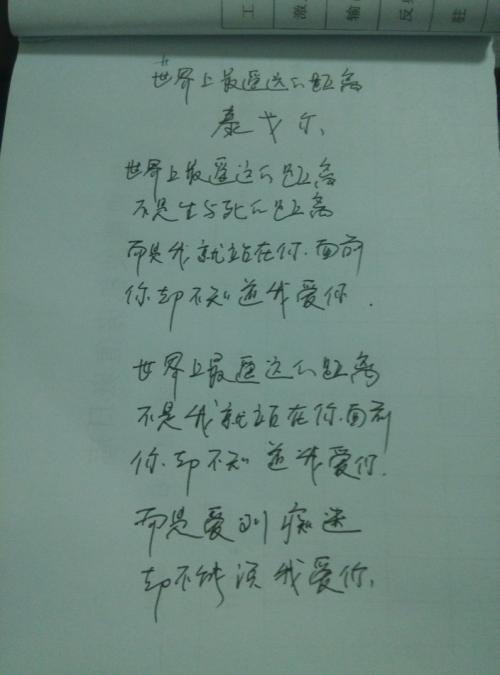 工 激 输 反 驻
世界上最遥远的距离
泰戈尔
世界上最遥远的距离
不是生与死的距离
而是我就站在你面前
你却不知道我爱你.
世界上最遥远的距离
不是我就站在你面前
你却不知道我爱你.
而是爱到痴迷
却不能说我爱你.